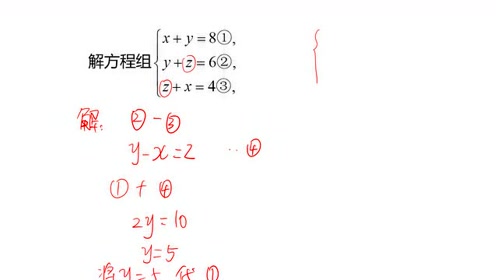 解方程组
x + y = 8①,
y + z = 6②,
z + x = 4③,
解: ② - ③
y - x = 2 ··④
① + ④
2y = 10
y = 5
将y = 5 代①